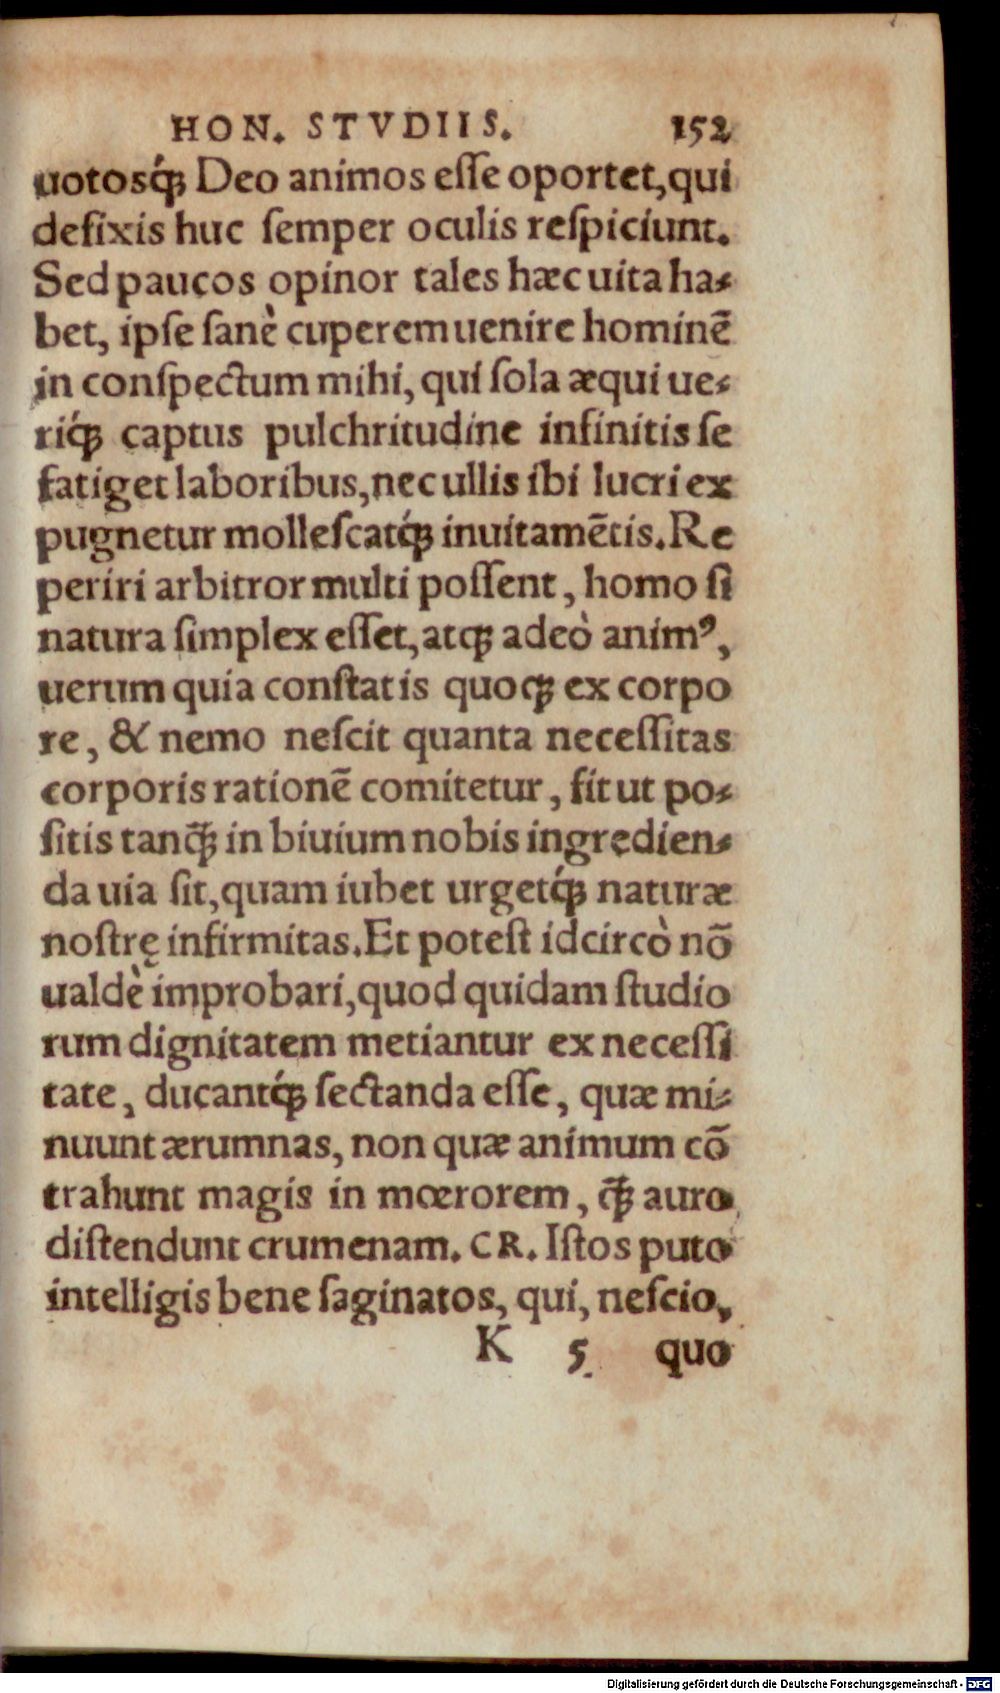 HON. STVDIIS. 152
uotosq́; Deo animos eſſe oportet, qui
defixis huc ſemper oculis reſpiciunt.
Sed paucos opinor tales hæc uita ha-
bet, ipſe ſanè cuperem uenire hominē
in conſpectum mihi, qui ſola æqui ue-
riq́; captus pulchritudine infinitis ſe
fatiget laboribus, nec ullis ibi lucri ex
pugnetur molleſcatq́; inuitamētis. Re
periri arbitror multi poſſent, homo ſi
natura ſimplex eſſet, atq; adeò animꝰ,
uerum quia conſtat is quoq; ex corpo
re, & nemo neſcit quanta neceſſitas
corporis rationē comitetur, fit ut po-
ſitis tanq̃; in biuium nobis ingredien-
da uia ſit, quam iubet urgetq́; naturæ
noſtrę infirmitas. Et poteſt idcircò nō
ualdè improbari, quod quidam ſtudio
rum dignitatem metiantur ex neceſſi
tate, ducantq́; ſectanda eſſe, quæ mi-
nuunt ærumnas, non quæ animum cō
trahunt magis in mœrorem, q̃; auro
diſtendunt crumenam. CR. Iſtos puto
intelligis bene ſaginatos, qui, neſcio,
K 5 quo
Digitalisierung gefördert durch die Deutsche Forschungsgemeinschaft - DFG